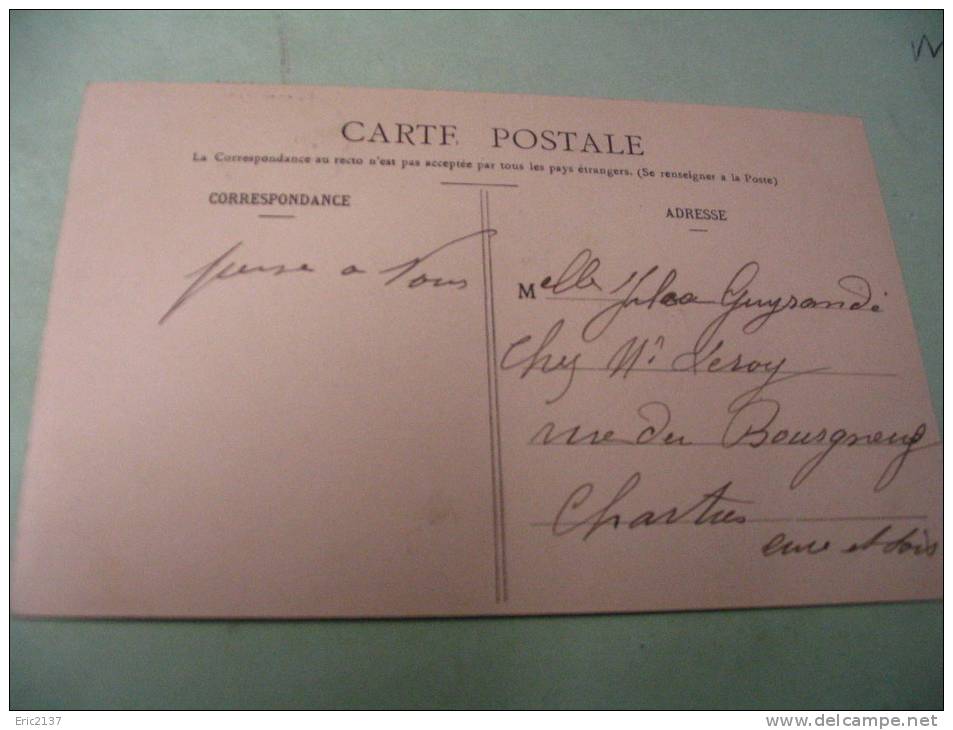 CARTE POSTALE
La Correspondance au recto n'est pas acceptée par tous les pays étrangers. (Se renseigner a la Poste)
CORRESPONDANCE
pense a Vous
ADRESSE
Melle Guyrandé
Chez Mr Leroy
rue du Bourgneuf
Chartres
eure et Loir
Eric2137
www.delcampe.net